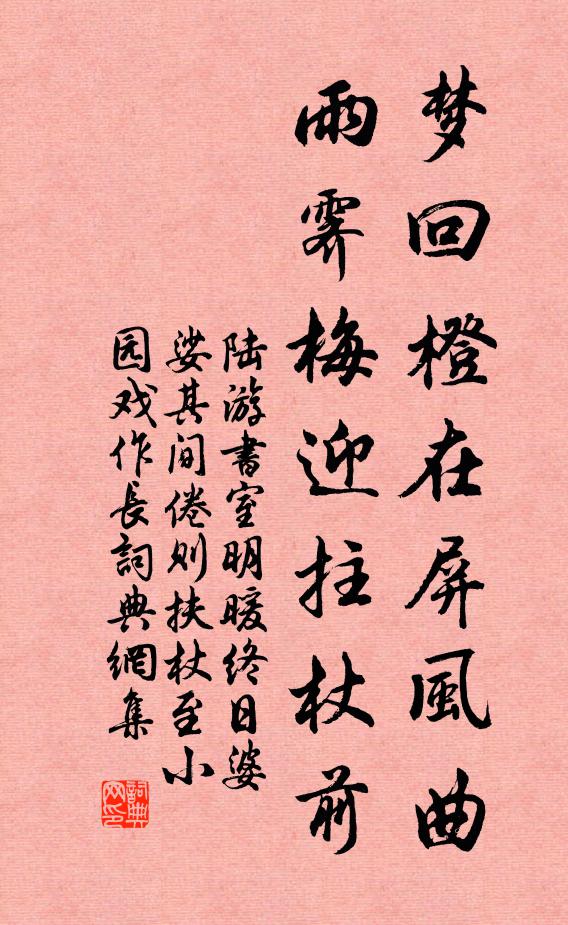 梦回橙在屏風曲
雨霽梅迎拄杖前
陆游書室明暖终日婆
娑其间倦则扶杖至小
园戏作長詞典網集
詞典
网印